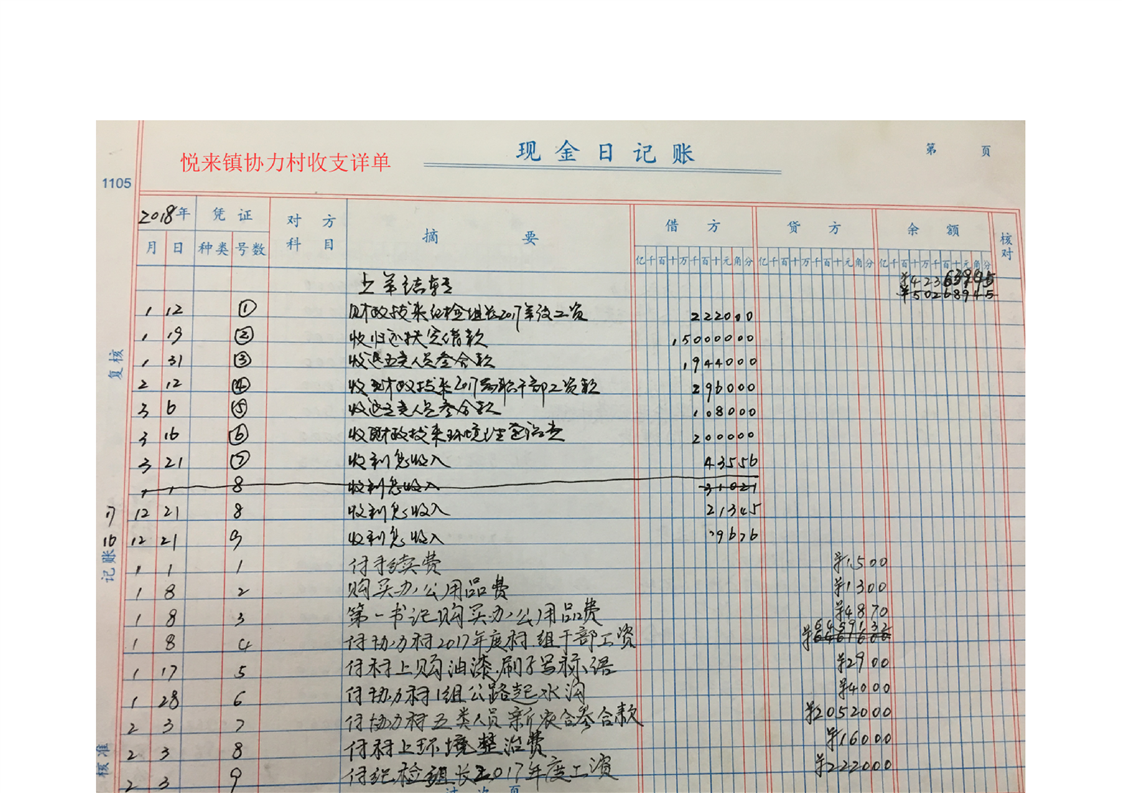 悦来镇协力村收支详单
现金日记账
第 页
1105
2018年 凭证 对方 摘要 借方 贷方 余额 核对
月 日 种类 号数 科目 亿千百十万千百十元角分 亿千百十万千百十元角分 亿千百十万千百十元角分
上年结转
¥50268945
1 12 ① 财政拨来纪检组长2017年度工资 222000
1 19 ② 收归还扶贫借款 15000000
1 31 ③ 收退五类人员叁合款 1944000
2 12 ④ 收财政拨来2017离职干部工资款 296000
3 6 ⑤ 收退五类人员叁合款 108000
3 16 ⑥ 收财政拨来环境整治费 200000
3 21 ⑦ 收利息收入 43556
8 收利息收入 31021
17 12 21 8 收利息收入 21345
16 12 21 9 收利息收入 29676
1 1 1 付手续费 ¥1500
1 8 2 购买办公用品费 ¥1300
1 8 3 第一书记购买办公用品费 ¥4870
1 8 4 付协力村2017年度村组干部工资
1 17 5 付村上购油漆,刷子写标语 ¥2900
1 28 6 付协力村1组公路起水沟 ¥4000
2 3 7 付协力村五类人员新农合叁合款 ¥2052000
2 3 8 付村上环境整治费 ¥16000
2 3 9 付纪检组长2017年度工资 ¥222000
复核
记账
核准